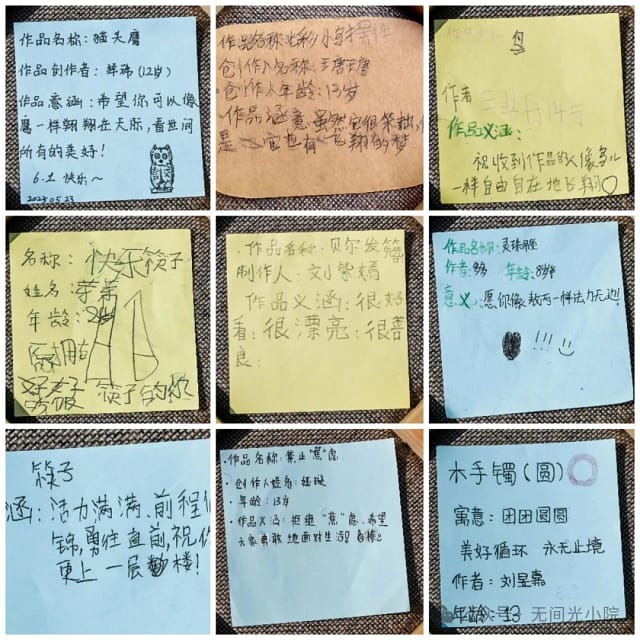 作品名称：猫头鹰
作品创作者：
(12岁)
作品意涵：希望你可以像
鹰一样翱翔在天际，看世间
所有的美好！
6.1 快乐~
2023.05.23
作品名称
创作人名称：王唐王唐
创作人年龄：13岁
作品涵意：虽然它很笨拙，但
是
它也有“飞翔”的梦
鸟
作者
14岁
作品义涵：
祝收到作品的人像鸟儿
一样自由自在地飞翔♡
名称：快乐筷子
姓名：
年龄：
拥有
筷子的你
作品名称：贝尔发簪
制作人：刘紫嫣
作品义涵：很好
看：很漂亮：很善
良：
作品名称：灵珠
作者：
年龄：8岁
意义：愿你像敖丙一样法力无边！
!!!
筷子
涵：活力满满、前程
锦，勇往直前，祝你
更上一层楼！
·作品名称：禁止“蕉”虑
·创作人姓名：
·年龄：13岁
·作品义涵：拒绝“蕉”虑，希望
大家勇敢地面对生活
木手镯（圆）
寓意：团团圆圆
美好循环 永无止境
作者：刘呈嘉
年龄：13
号
无间光小院